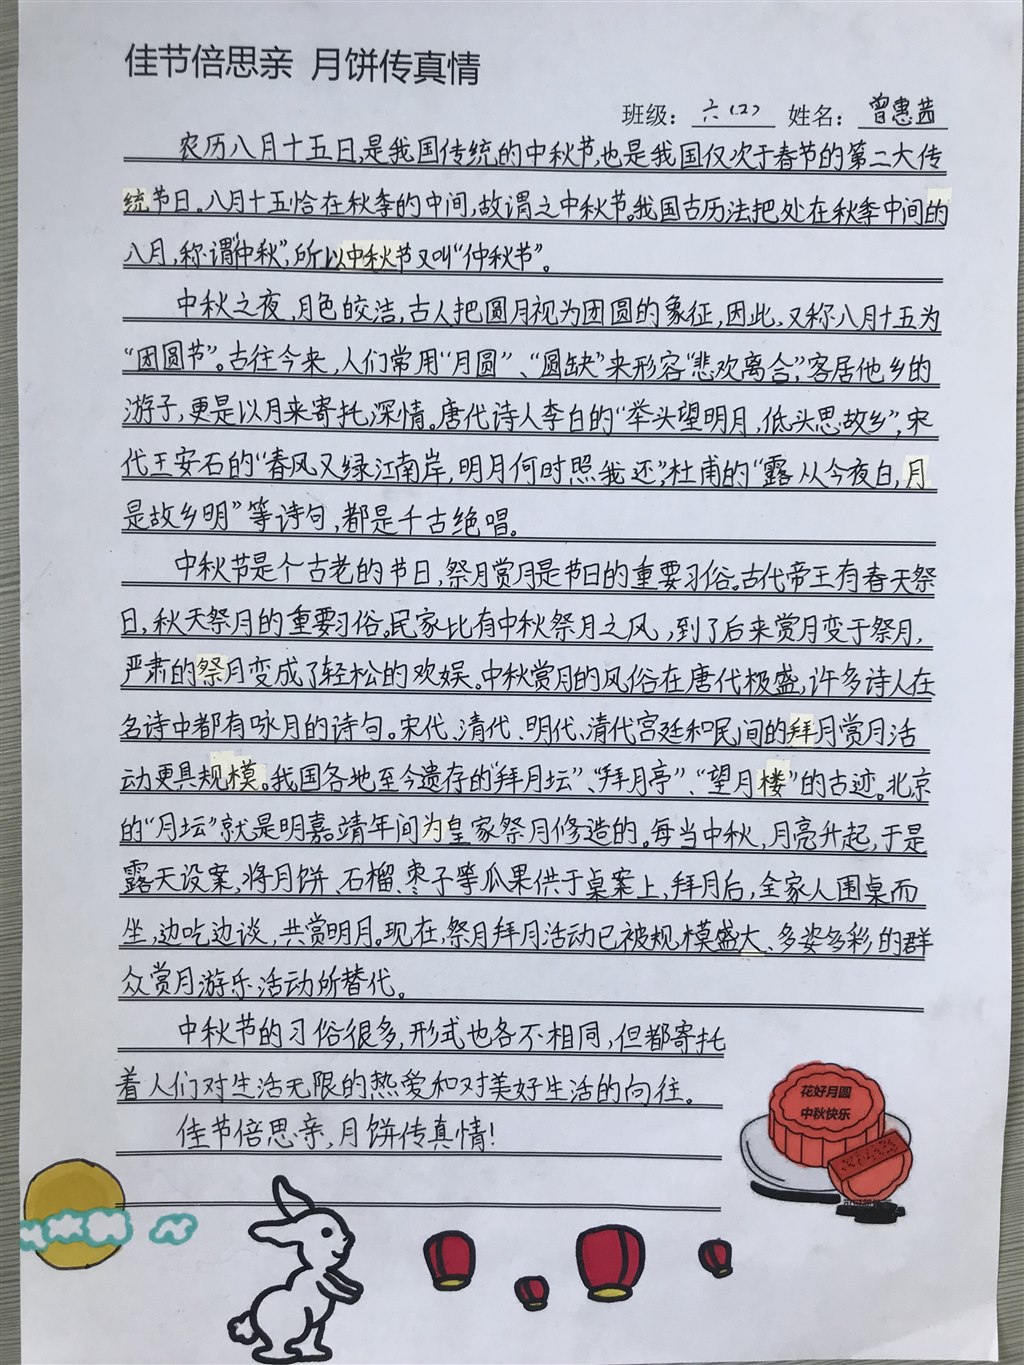 佳节倍思亲 月饼传真情
班级：六(2) 姓名：曾惠茜
农历八月十五日,是我国传统的中秋节,也是我国仅次于春节的第二大传
统节日。八月十五恰在秋季的中间,故谓之中秋节。我国古历法把处在秋季中间的
八月,称谓“仲秋”,所以中秋节又叫“仲秋节”。
中秋之夜,月色皎洁,古人把圆月视为团圆的象征,因此,又称八月十五为
“团圆节”。古往今来,人们常用“月圆”、“圆缺”来形容“悲欢离合”,客居他乡的
游子,更是以月来寄托深情。唐代诗人李白的“举头望明月,低头思故乡”,宋
代王安石的“春风又绿江南岸,明月何时照我还”,杜甫的“露从今夜白,月
是故乡明”等诗句,都是千古绝唱。
中秋节是个古老的节日,祭月赏月是节日的重要习俗。古代帝王有春天祭
日,秋天祭月的重要习俗。民家比有中秋祭月之风,到了后来赏月变于祭月,
严肃的祭月变成了轻松的欢娱。中秋赏月的风俗在唐代极盛,许多诗人在
名诗中都有咏月的诗句。宋代、清代、明代、清代宫廷和民间的拜月赏月活
动更具规模。我国各地至今遗存的“拜月坛”、“拜月亭”、“望月楼”的古迹。北京
的“月坛”就是明嘉靖年间为皇家祭月修造的。每当中秋,月亮升起,于是
露天设案,将月饼、石榴、枣子等瓜果供于桌案上,拜月后,全家人围桌而
坐,边吃边谈,共赏明月。现在,祭月拜月活动已被规模盛大、多姿多彩的群
众赏月游乐活动所替代。
中秋节的习俗很多,形式也各不相同,但都寄托
着人们对生活无限的热爱和对美好生活的向往。
佳节倍思亲,月饼传真情!
花好月圆
中秋快乐